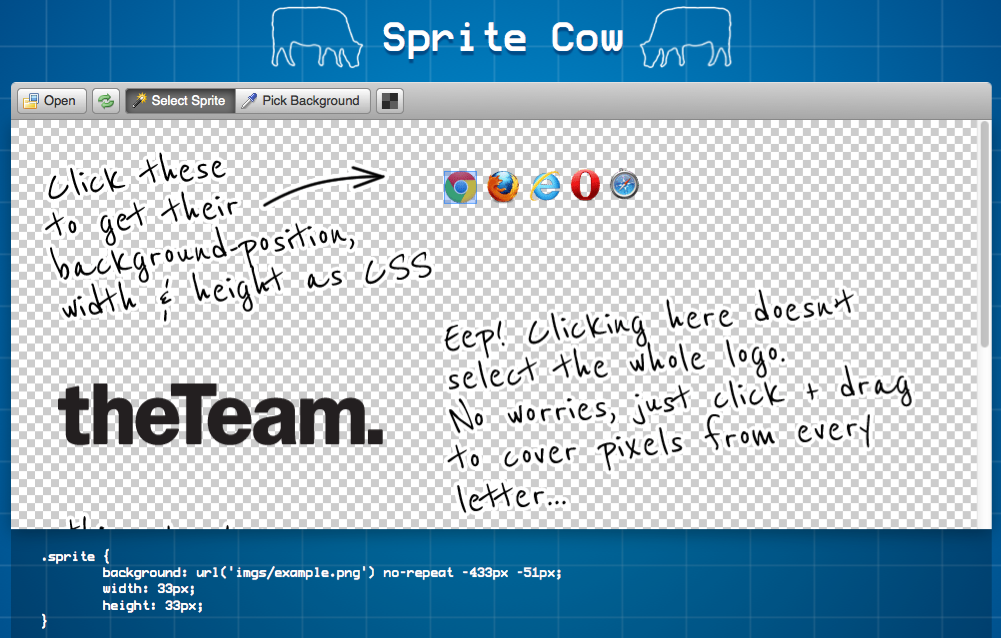 Sprite Cow
Open Select Sprite Pick Background
Click these
to get their
background-position,
width & height as CSS
Eep! Clicking here doesnt
select the whole logo.
No worries, just click + drag
to cover pixels from every
letter...
theTeam.
.sprite {
background: url('imgs/example.png') no-repeat -433px -51px;
width: 33px;
height: 33px;
}